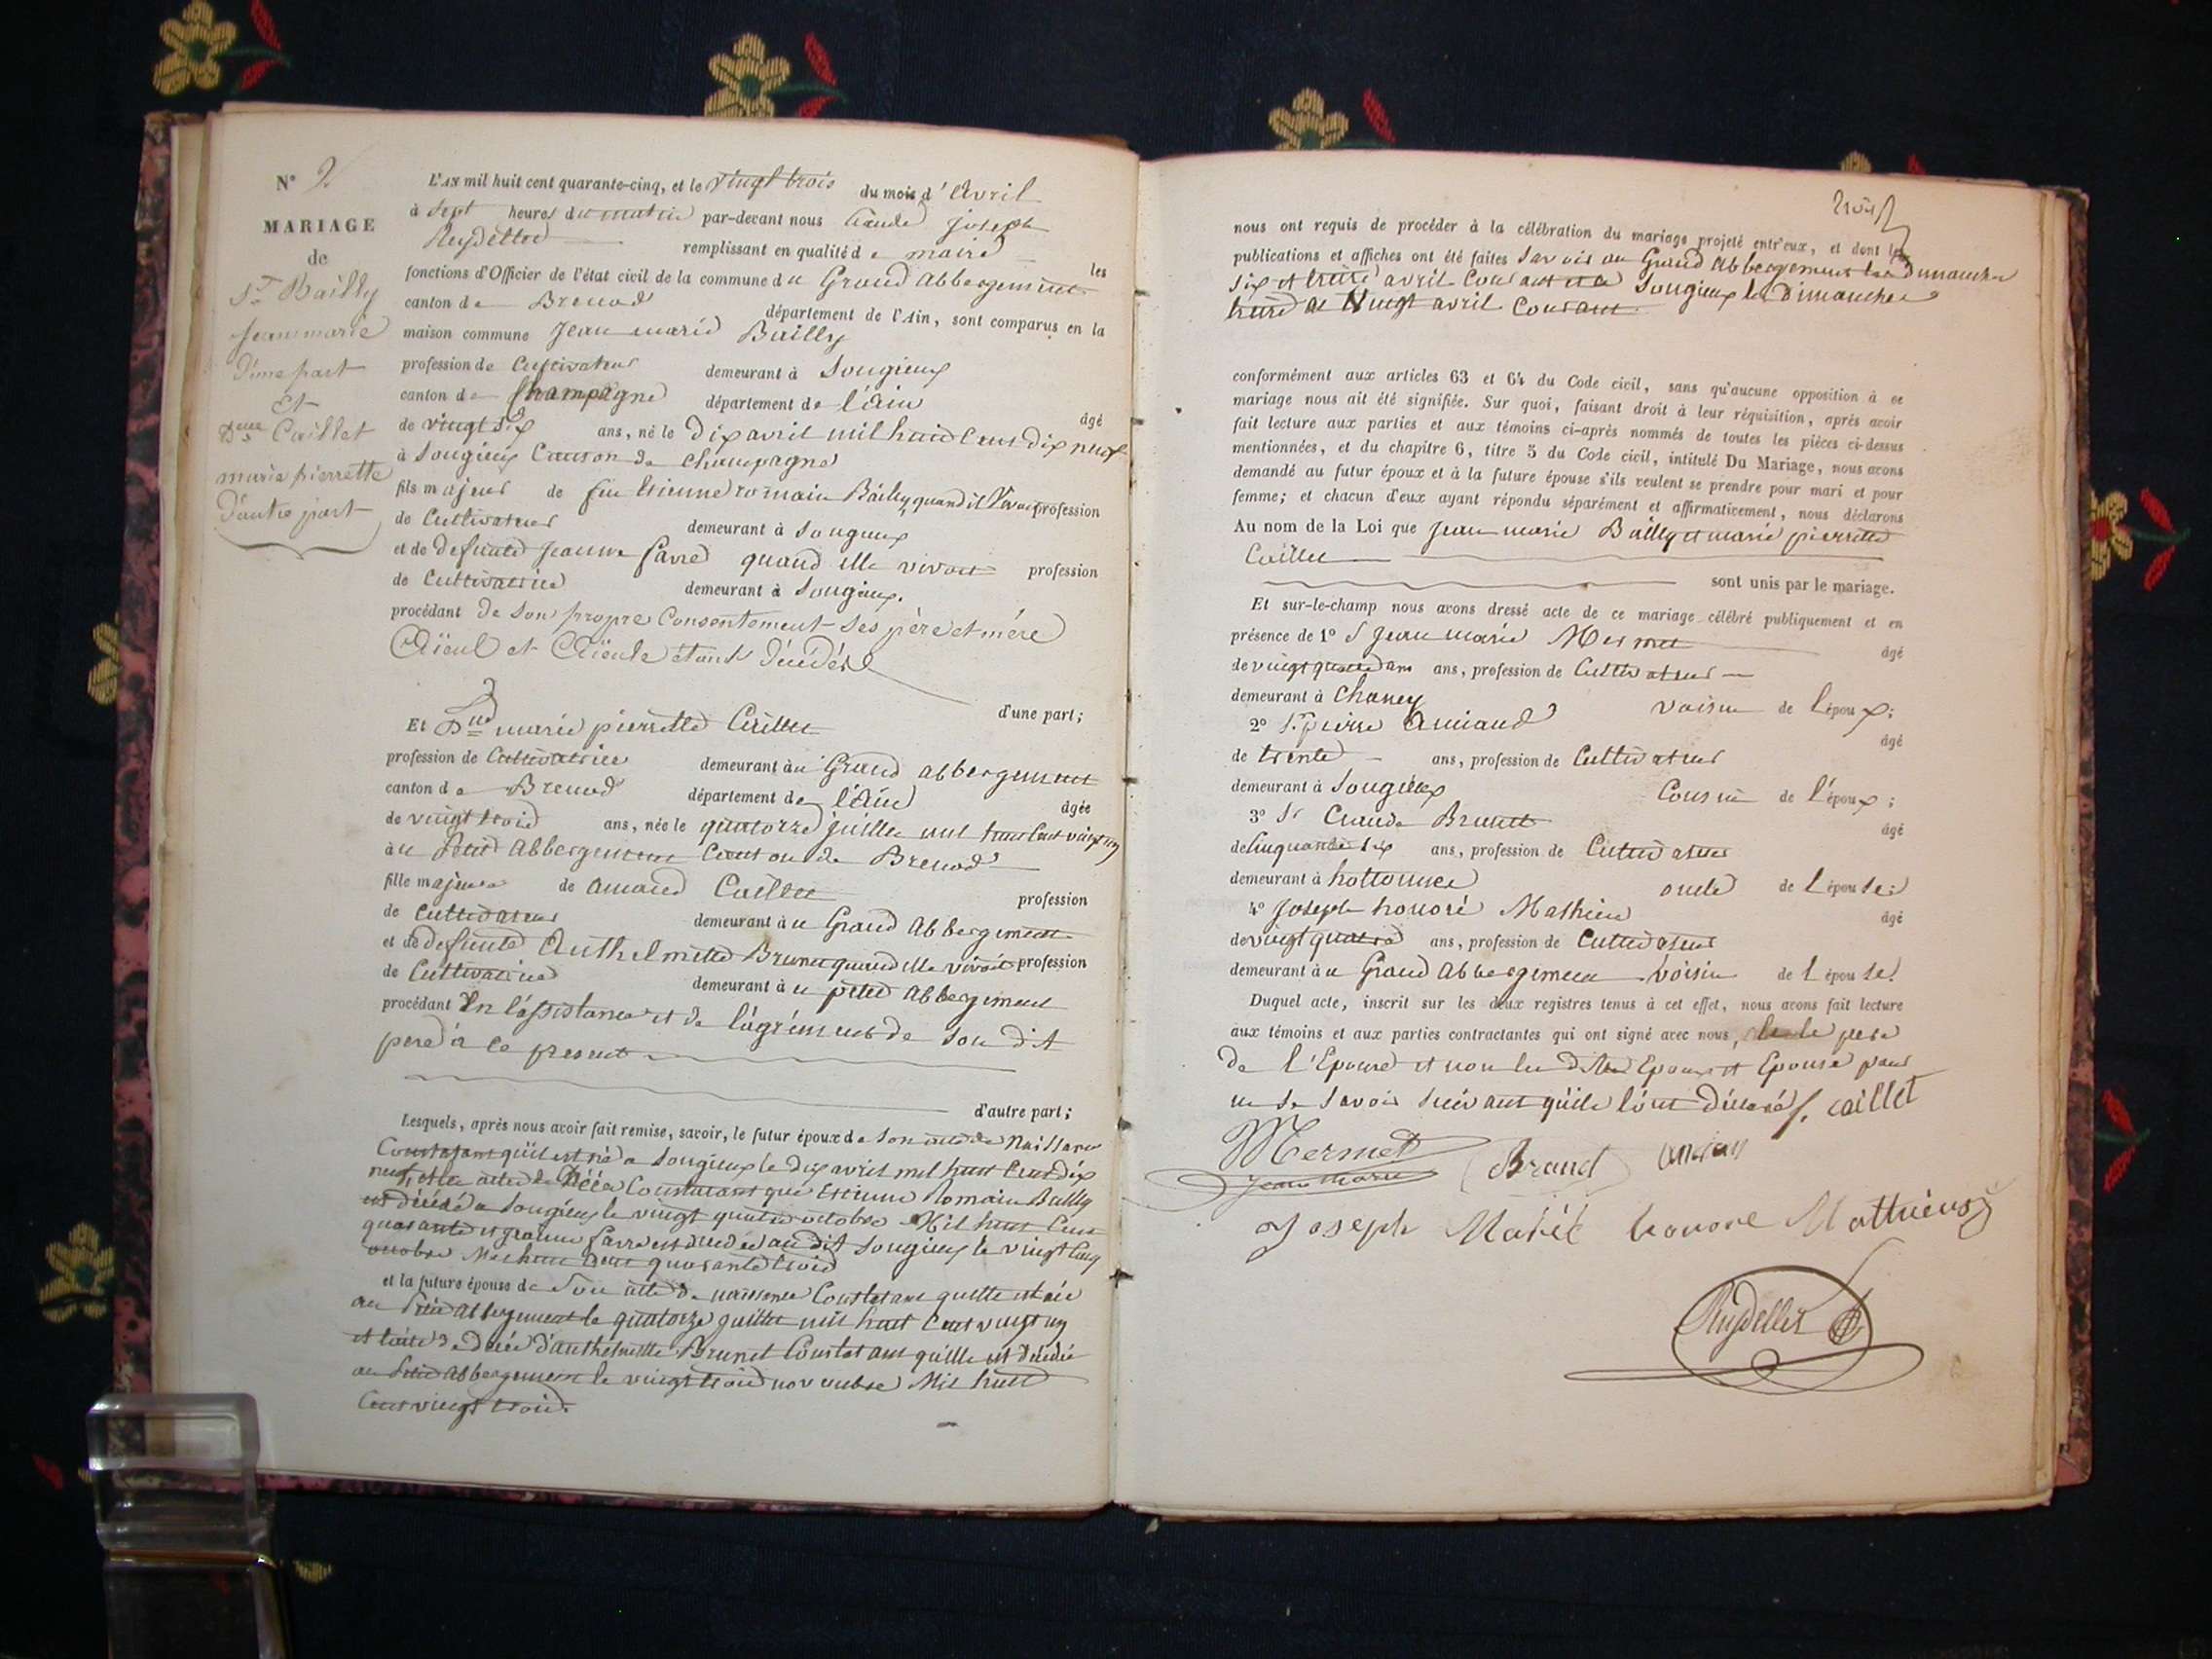 N° 2.
MARIAGE
de
Sr Bailly
jean marie
d'une part
et
Dlle Caillet
marie pierrette
d'autre part
L'AN mil huit cent quarante-cinq, et le vingt trois du mois d'avril
à sept heures du matin par-devant nous Claude joseph
remplissant en qualité de maire les
fonctions d'Officier de l'état civil de la commune du Grand abbergement
canton de Brenod département de l'Ain, sont comparus en la
maison commune Jean marie Bailly
profession de Cultivateur demeurant à Songieux
canton de Champagne département de l'ain âgé
de vingt six ans, né le dix avril mil huit Cent dix neuf
à Songieux Canton de Champagne
fils majeur de feu Etienne romain Bailly, quand il vivait profession
de Cultivateur demeurant à Songieux
et de defunte Jeanne favre quand elle vivait profession
de Cultivatrice demeurant à Songieux.
procédant de son propre Consentement ses père et mère
Aïeul et Aïeule étant décédés
d'une part;
Et Dlle marie pierrette Caillet
profession de Cultivatrice demeurant au Grand abbergement
canton de Brenod département de l'ain âgée
de vingt trois ans, née le quatorze juillet mil huit Cent vingt un
au Petit abbergement Canton de Brenod
fille majeure de amand Caillet profession
de Cultivateur demeurant au Grand abbergement
et de defunte Anthelmette Brunet quand elle vivait profession
de Cultivatrice demeurant au petit abbergement
procédant en l'assistance et de l'agrément de son dit
pere à ce present
d'autre part;
Lesquels, après nous avoir fait remise, savoir, le futur époux de son acte de Naissance
Constatant qu'il est né a Songieux le dix avril mil huit Cent dix
neuf, et les actes de Décès Constatant que Etienne Romain Bailly
est décédé a Songieux le vingt quatre octobre Mil huit Cent
quarante et jeanne favre est decedée au dit Songieux le vingt Cinq
octobre Mil huit Cent quarante trois
et la future épouse de son acte de naissance Constatant qu'elle est née
au Petit abbergement le quatorze juillet mil huit Cent vingt un
et l'acte de decés d'anthelmette Brunet Constatant qu'elle est décédée
au Petit abbergement le vingt trois novembre Mil huit
Cent vingt trois.
nous ont requis de procéder à la célébration du mariage projeté entr'eux, et dont les
publications et affiches ont été faites savoir au Grand abbergement les dimanches
six et treize avril Courant et a Songieux les dimanches
treize et vingt avril Courant.
conformément aux articles 63 et 64 du Code civil, sans qu'aucune opposition à ce
mariage nous ait été signifiée. Sur quoi, faisant droit à leur réquisition, après avoir
fait lecture aux parties et aux témoins ci-après nommés de toutes les pièces ci-dessus
mentionnées, et du chapitre 6, titre 5 du Code civil, intitulé Du Mariage, nous avons
demandé au futur époux et à la future épouse s'ils veulent se prendre pour mari et pour
femme; et chacun d'eux ayant répondu séparément et affirmativement, nous déclarons
Au nom de la Loi que Jean marie Bailly et marie pierrette
Caillet
sont unis par le mariage.
Et sur-le-champ nous avons dressé acte de ce mariage célébré publiquement et en
présence de 1° S Jean marie Mermet âgé
de vingt quatre ans ans, profession de Cultivateur
demeurant à Chaney voisin de l'époux;
2° Sr pierre âgé
de trente ans, profession de Cultivateur
demeurant à Songieux Cousin de l'époux;
3° Sr Claude Brunet âgé
de Cinquante six ans, profession de Cultivateur
demeurant à hotonnes oncle de l'épouse;
4° Joseph honoré Mathieu âgé
de vingt quatre ans, profession de Cultivateur
demeurant au Grand abbergement voisin de l'épouse.
Duquel acte, inscrit sur les deux registres tenus à cet effet, nous avons fait lecture
aux témoins et aux parties contractantes qui ont signé avec nous, le pere
de l'Epouse et non les dits Epoux et Epouse pour
ne le savoir suivant qu'ils l'ont déclaré. caillet
Mermet
jean marie
Joseph Marie honoré Matthieu